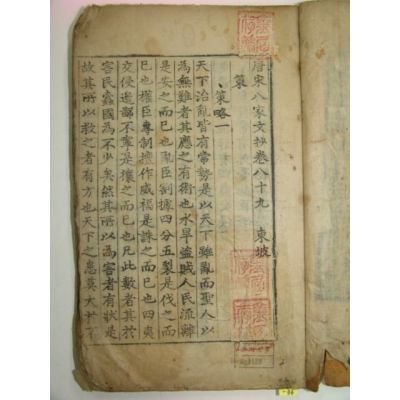 唐宋八家文抄卷八十九 東坡
策
策略一
天下治亂皆有常勢是以天下雖亂而聖人以
為無難者其應之有術也水旱盜賊人民流離
是安之而已也亂臣割據四分五裂是伐之而
已也權臣專制擅作威福是誅之而已也四夷
交侵邊鄙不寧是攘之而已也凡此數者其於
害民蠹國為不少矣然其所以為害者有狀是
故其所以救之者有方也天下之患莫大於不